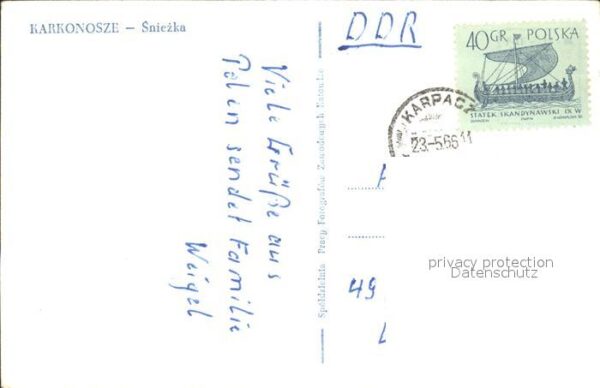 KARKONOSZE – Śnieżka
DDR
40 GR POLSKA
STATEK SKANDYNAWSKI IX W
KARPACZ
23.-5.66.11
Viele Grüße aus
Polen sendet Familie
Weigel
Spółdzielnia Pracy Fotografów Zawodowych Katowice
privacy protection
Datenschutz
49